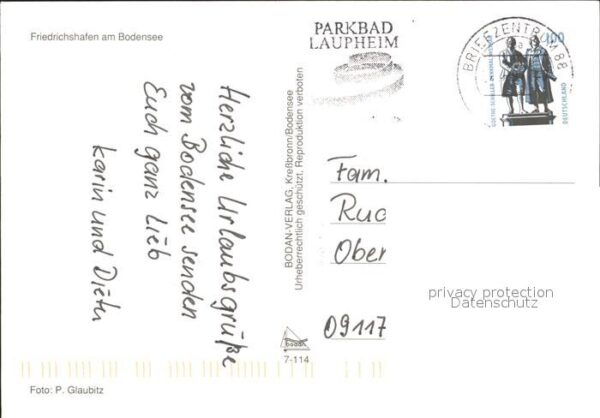 Friedrichshafen am Bodensee
PARKBAD
LAUPHEIM
BRIEFZENTRUM 88
100
GOETHE-SCHILLER-DENKMAL
DEUTSCHLAND
Herzliche Urlaubsgrüße
vom Bodensee senden
Euch ganz lieb
Karin und Dieter
BODAN-VERLAG, Kreßbronn/Bodensee
Urheberrechtlich geschützt, Reproduktion verboten
Fam.
Ruc
Ober
09117
privacy protection
Datenschutz
bodan
7-114
Foto: P. Glaubitz